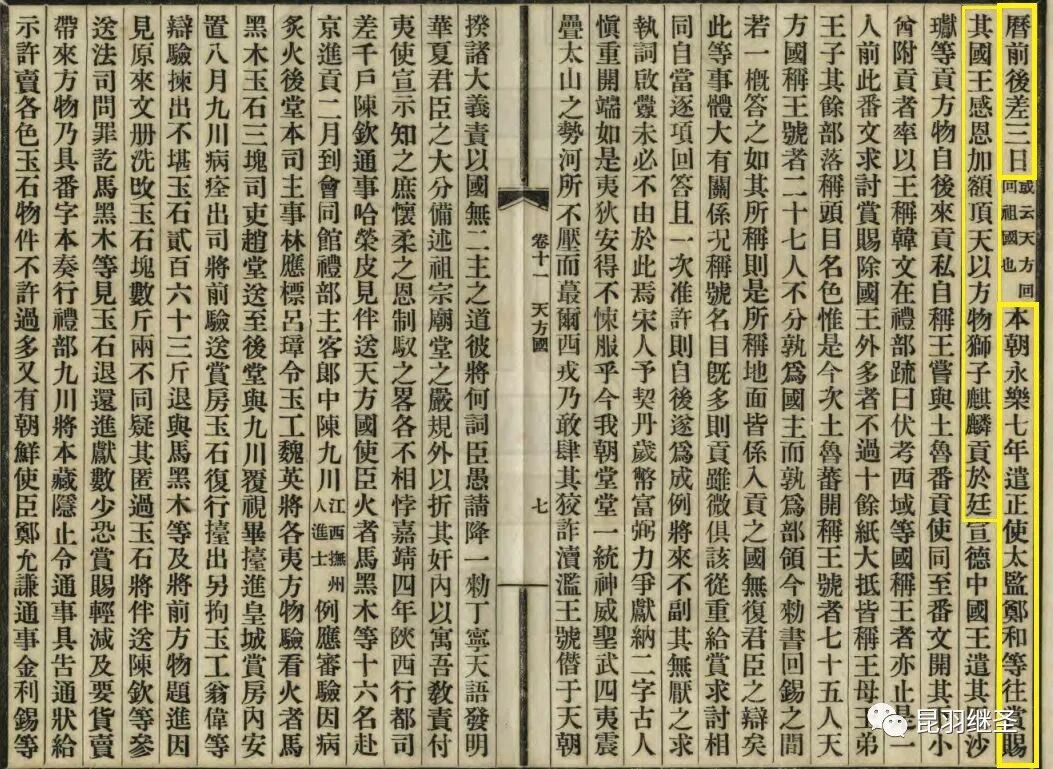 曆前後差三日或云天方回回祖國也本朝永樂七年遣正使太監鄭和等往賞賜
其國王感恩加額頂天以方物獅子麒麟貢於廷宣德中國王遣其沙
瓛等貢方物自後來貢私自稱王嘗與土魯番貢使同至番文開其小
酋附貢者率以王稱韓文在禮部疏曰伏考西域等國稱王者亦止一
人前此番文求討賞賜除國王外多者不過十餘紙大抵皆稱王母王弟
王子其餘部落稱頭目名色惟是今次土魯蕃開稱王號者七十五人天
方國稱王號者二十七人不分孰爲國主而孰爲部領今勑書回錫之間
若一槪答之如其所稱則是所稱地面皆係入貢之國無復君臣之辯矣
此等事體大有關係况稱號名目既多則貢雖微俱該從重給賞求討相
同自當逐項回答且一次准許則自後遂爲成例將來不副其無厭之求
執詞啟釁未必不由於此焉宋人予契丹歲幣富弼力爭獻納二字古人
愼重開端如是夷狄安得不悚服乎今我朝堂堂一統神威聖武四夷震
疊太山之勢河所不壓而蕞爾西戎乃敢肆其狡詐瀆濫王號僭于天朝
卷十一 天方國 七
揆諸大義責以國無二主之道彼將何詞臣愚請降一勑丁寧天語發明
華夏君臣之大分備述祖宗廟堂之嚴規外以折其奸內以寓吾敎責付
夷使宣示知之庶懷柔之恩制馭之畧各不相悖嘉靖四年陝西行都司
差千戶陳欽通事哈榮皮見伴送天方國使臣火者馬黑木等十六名赴
京進貢二月到會同館禮部主客郎中陳九川江西撫州人進士例應審驗因病
炙火後堂本司主事林應標呂璋令玉工魏英將各夷方物驗看火者馬
黑木玉石三塊司吏趙堂送至後堂與九川覆視畢擡進皇城賞房內安
置八月九川病痊出司將前驗送賞房玉石復行擡出另拘玉工翁偉等
辯驗揀出不堪玉石貳百六十三斤退與馬黑木等及將前方物題進因
見原來文册洗改玉石塊數斤兩不同疑其匿過玉石將伴送陳欽等參
送法司問罪訖馬黑木等見玉石退還進獻數少恐賞賜輕減及要貨賣
帶來方物乃具番字本奏行禮部九川將本藏隱止令通事具告通狀給
示許賣各色玉石物件不許過多又有朝鮮使臣鄭允謙通事金利錫等
昆羽继圣